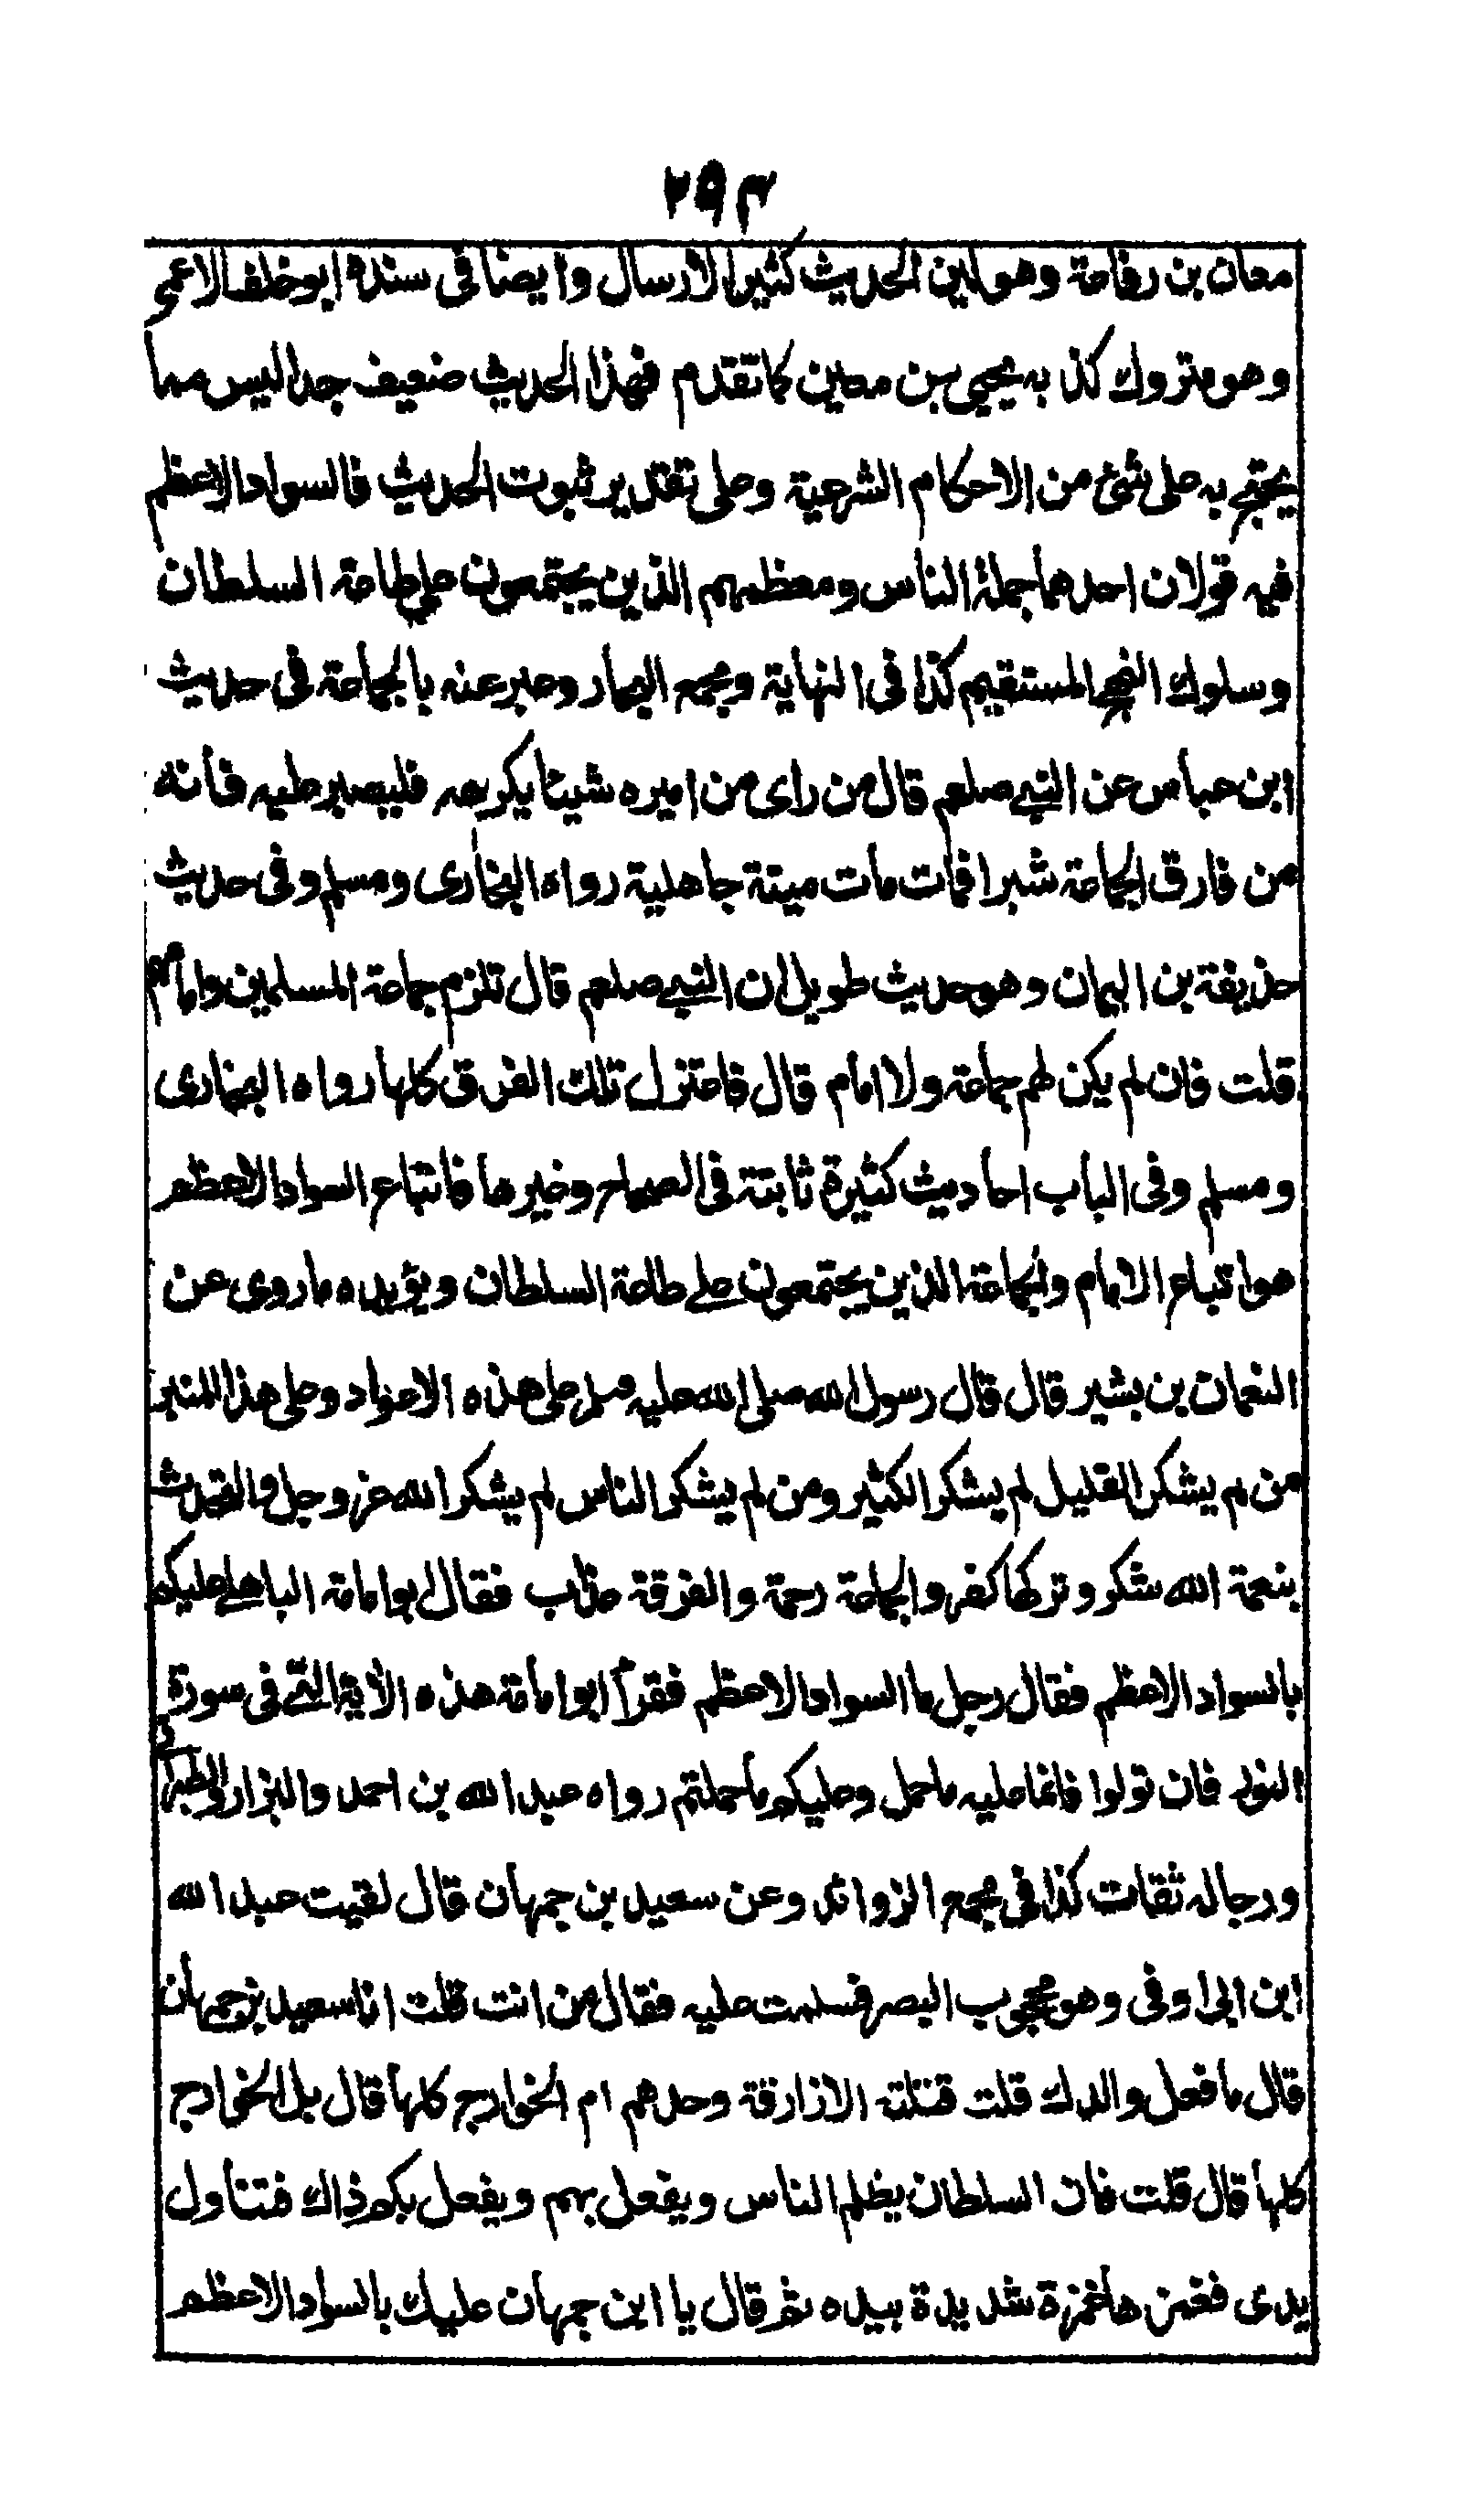 ٢٩٣
معان بن رفاعة وهو لين الحديث كثير الارسال وايضا فى سنده ابو خلف الاعمى
وهو متروك كذبه يحيى بن معين كما تقدم فهذا الحديث ضعيف جدا ليس مما
يحتج به على شئ من الاحكام الشرعية وعلى تقدير ثبوت الحديث فالسواد الاعظم
فيه قولان احدهما جملة الناس ومعظمهم الذين يجتمعون على طاعة السلطان
وسلوك النهج المستقيم كذا فى النهاية ومجمع البحار وعبر عنه بالجماعة فى حديث
ابن عباس عن النبى صلعم قال من راى من اميره شيئا يكرهه فليصبر عليه فانه
من فارق الجماعة شبرا فمات مات ميتة جاهلية رواه البخارى ومسلم وفى حديث
حذيفة بن اليمان وهو حديث طويل ان النبى صلعم قال تلزم جماعة المسلمين وامامهم
قلت فان لم يكن لهم جماعة ولا امام قال فاعتزل تلك الفرق كلها رواه البخارى
ومسلم وفى الباب احاديث كثيرة ثابتة فى الصحاح وغيرها فاتباع السواد الاعظم
هو اتباع الامام والجماعة الذين يجتمعون على طاعة السلطان ويؤيده ما روى عن
النعمان بن بشير قال قال رسول الله صلى الله عليه وسلم على هذه الاعواد وعلى هذا المنبر
من لم يشكر القليل لم يشكر الكثير ومن لم يشكر الناس لم يشكر الله عز وجل والتحدث
بنعمة الله شكر وتركها كفر والجماعة رحمة والفرقة عذاب فقال ابو امامة الباهلى عليكم
بالسواد الاعظم فقال رجل ما السواد الاعظم فقرأ ابو امامة هذه الآية التى فى سورة
النور فان تولوا فانما عليه ما حمل وعليكم ما حملتم رواه عبد الله بن احمد والبزار والطبرانى
ورجاله ثقات كذا فى مجمع الزوائد وعن سعيد بن جمهان قال لقيت عبد الله
ابن ابى اوفى وهو محجوب البصر فسلمت عليه فقال من انت قلت انا سعيد بن جمهان
قال ما فعل والدك قلت قتلته الازارقة وحدهم ام الخوارج كلها قال بل الخوارج
كلها قال قلت فان السلطان يظلم الناس ويفعل بهم ويفعل بكم ذاك فتناول
يدى فغمزها غمزة شديدة بيده ثم قال يا ابن جمهان عليك بالسواد الاعظم